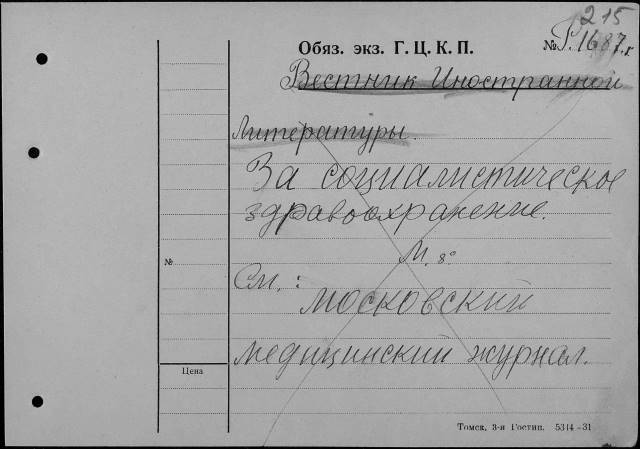 215
Обяз. экз. Г. Ц. К. П.
№ Р.1687.г
Вестник Иностранной
Литературы.
За социалистическое
здравоохранение.
М. 8°
№
См.:
московский
медицинский журнал.
Цена
Томск, 3-я Гостип. 5314-31